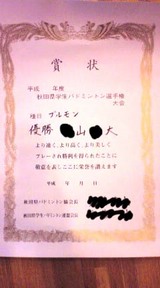 賞状
平成 年度
秋田県学生バドミントン選手権
大会
種目
優勝 山 大
より速く、より高く、より美しく
プレーされ勝利を得られたことに
敬意を表しここに栄誉を讃えます
平成 年 月 日
秋田県バドミントン協会長
秋田県学生バドミントン連盟会長